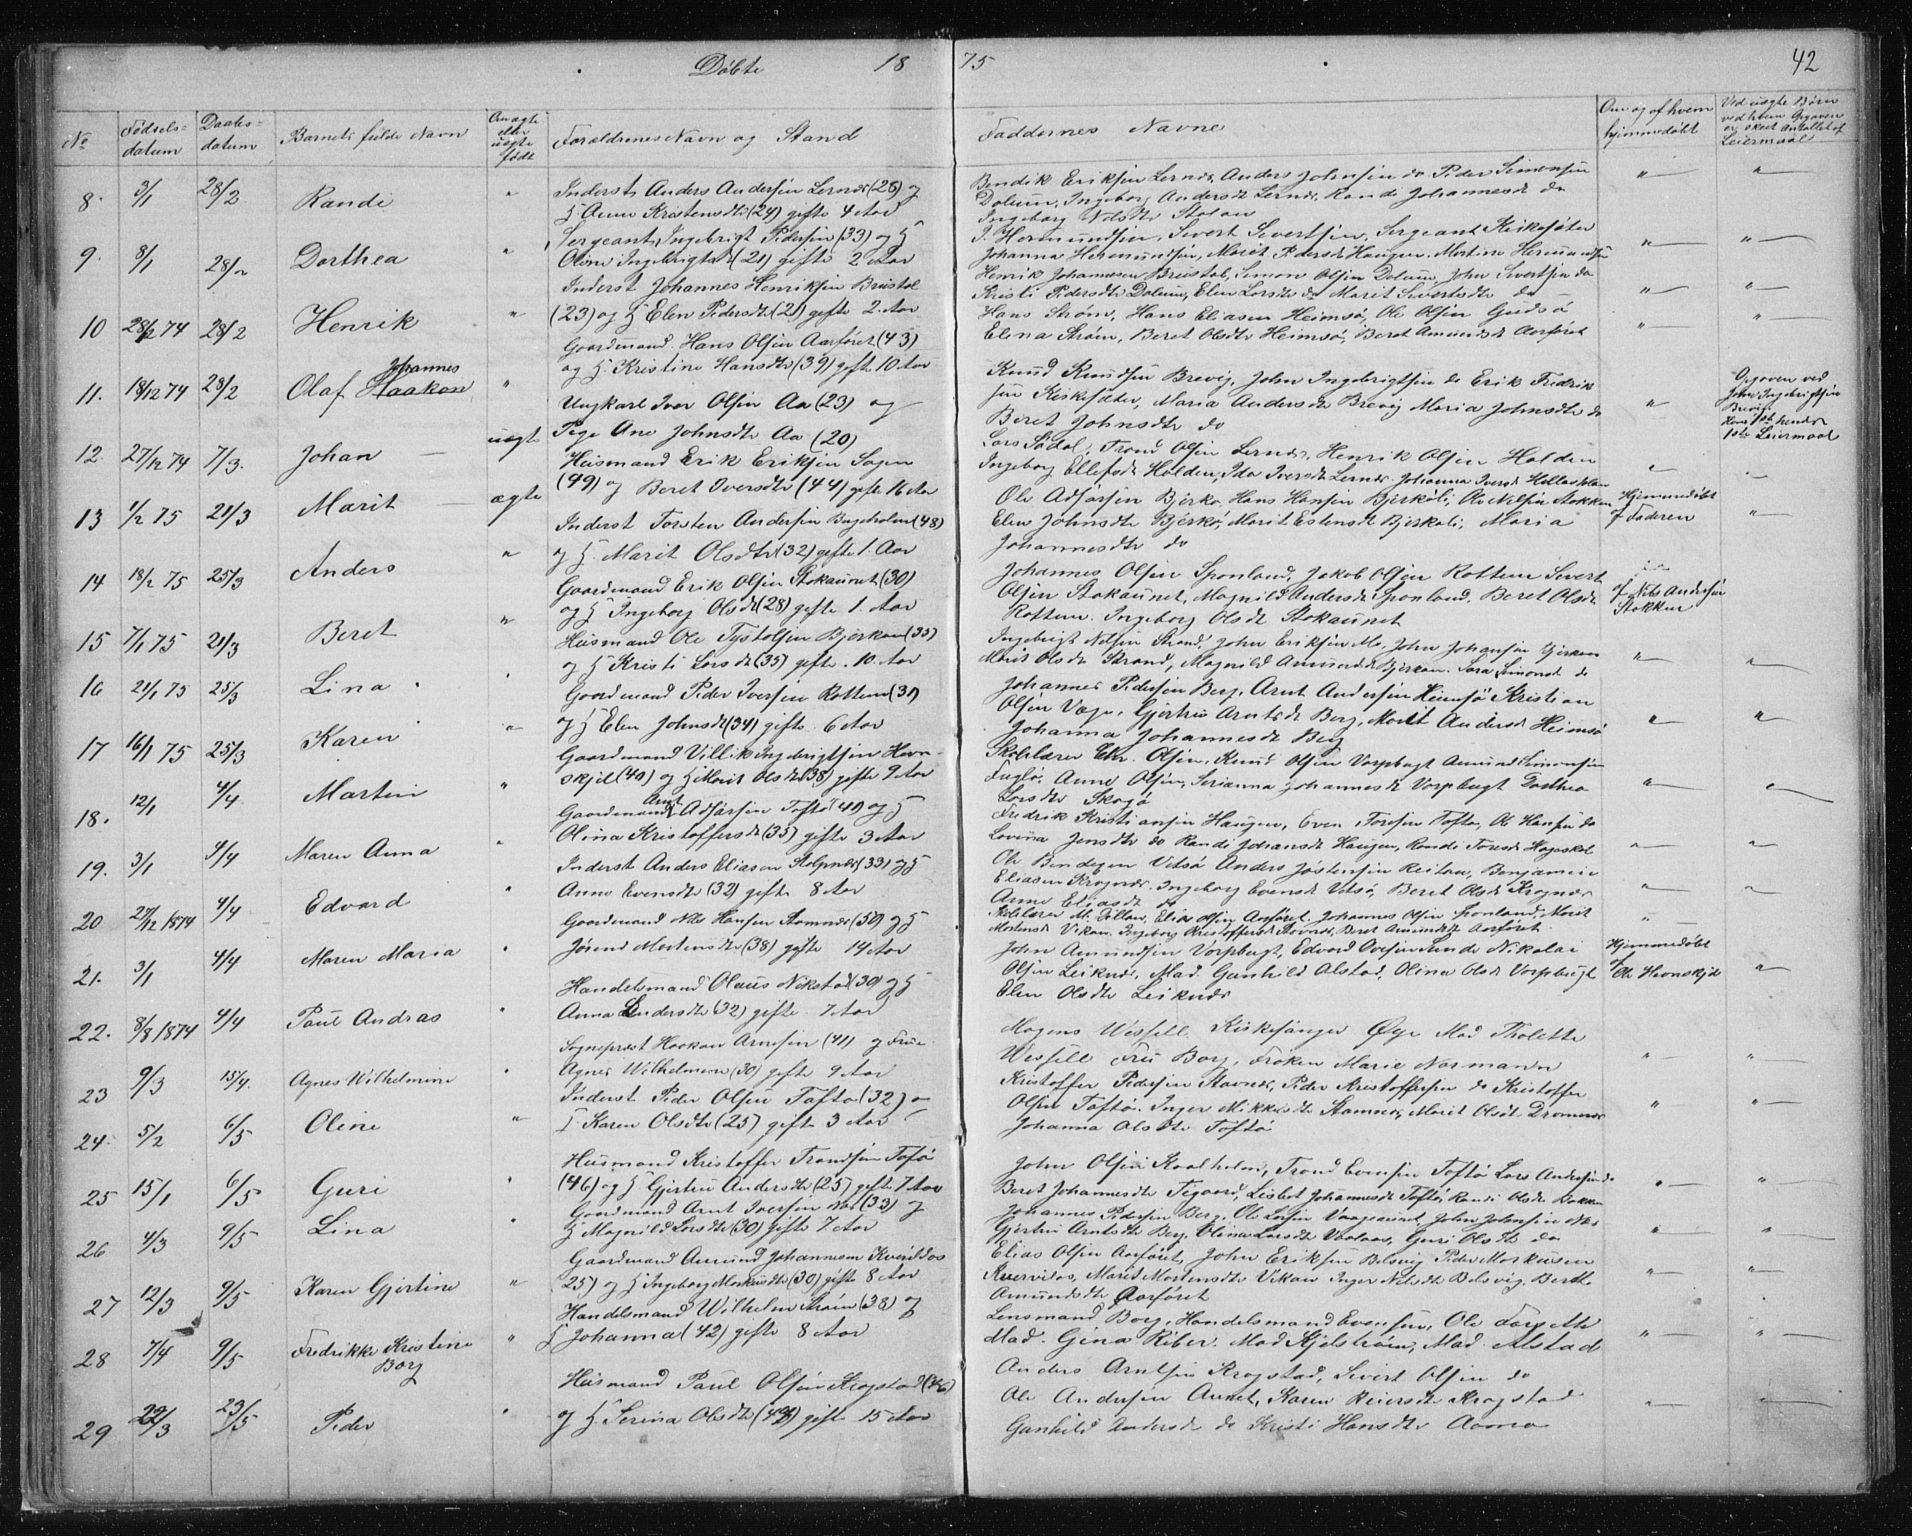 Døbte 18 75 42
No Fødsels-datum Daabs-datum Barnets fulde Navn Om ægte eller uægte født Forældrenes Navn og Stand Faddernes Navne Om og af hvem hjemmedøbt Ved uægte Børn ved hvem Opgaven er skeet Antallet af Leiermaal
8. 3/1 28/2 Randi " Inderst Anders Andersen Lernes (26) og
H. Anne Kristensdtr (24) gifte 4 Aar
Bendik Eriksen Lernes, Anders Johnsen do Peder Simonsen
Dolum, Ingeborg Andersdt Lernes, Randi Johannesdt do
Ingeborg Nilsdtr Stolan
9. 8/1 28/2 Dorthea " Sergeant Ingebrigt Pedersen (33) og H
Oline Ingebrigtsdt (21) gifte 2 Aar
J. Hermundsen, Sivert Sivertsen, Sergeant Kirksæter
Johanna Hermundsen, Marit Pedersdt Haugen, Martine Hermundsen
10 28/12 74 28/2 Henrik " Inderst Johannes Henriksen Breistol
(23) og H Elen Pedersdtr (21) gifte 2 Aar
Henrik Johannesen Breistol, Simon Olsen Dolum, John Sivertsen do
Kristi Pedersdtr Dolum, Elen Larsdtr do Marit Sivertsdtr do
11. 18/12 74 28/2 Olaf Johannes Haakon " Gaardmand Hans Olsen Aarføret (43)
og H. Kristine Hansdtr (39) gifte 10 Aar
Hans Strøm, Hans Eliasen Heimsø, Ole Olsen
Elena Strøm, Beret Olsdtr Heimsø, Beret Amundsdt Aarføret
12 27/12 74 7/3. Johan uægte Ungkarl Iver Olsen Aa (23) og
Pige Ane Johnsdtr Aa (20)
Knud Knudsen Brevig, John Ingebrigtsen do Erik Fredrik
sen Kirksæter, Maria Andersdtr Brevig Maria Johnsdtr do
Beret Johnsdtr do
Opgaven ved John Ingebrigtsen Brevig
Hans 1ste hendes 1ste Leiermaal
13 1/2 75 21/3 Marit ægte Husmand Erik Eriksen Sagen
(49) og Beret Iversdtr (44) gifte 16 Aar
Lars Sødal, Trond Olsen Lernes, Henrik Olsen Holden
Ingeborg Ellefsdt Holden, Ida Iversdt Lernes, Johanna Iversdt
14 18/2 75 25/3 Anders " Inderst Torsten Andersen Bugeholm (48)
og H. Marit Olsdtr (32) gifte 1. Aar
Ole Adsersen Bjerkø, Hans Hansen Bjerkøli, Ole Nilsen Stokken
Elen Johnsdtr Bjerkø, Marit Estensdt Bjerkøli, Maria
Johannesdtr do
Hjemmedøbt af Faderen
15 7/1 75 21/3 Beret " Gaardmand Erik Olsen Stokaunet (30)
og H Ingeborg Olsdt (28) gifte 1. Aar
Johannes Olsen Sponland, Jakob Olsen Rottem Sivert
Olsen Stokaunet, Magnild Andersdt Sponland, Beret Olsdt
Rottem. Ingeborg Olsdt Stokaunet
af Nils Andersen Stokken
16 21/1 75 25/3 Lina Husmand Ole Tystolsen Bjerkan (33)
og H Kristi Larsdt (35) gifte 10 Aar
Ingebrigt Nilsen Strand, John Eriksen Mo, John Johansen Bjerkan
Marit Olsdt Strand, Magnild Amundsdt Bjerkan, Sara Simonsd do
17 16/1 75 25/3 Karen " Gaardmand Peder Iversen Rottem (31)
og H Elen Johnsdt (34) gifte 6 Aar
Johannes Pedersen Berg, Arnt Andersen Heimsø Kristian
Olsen Vage, Gjertru Arntsdt Berg, Marit Andersdt Heimsø
Johanna Johannesdt Berg
18. 12/1 4/4 Martin " Gaardmand Villik Ingebrigtsen Havn-
skjel (40) og H Marit Olsdt (38) gifte 9 Aar
Skolelærer Chr. Olsen, Knud Olsen Vorpbugt Amund Simonsen
Fuglø. Anne Olsen, Serianna Johannesdt Vorpbugt Dorthea
Larsdtr Skogø
19. 3/1 4/4 Maren Anna Gaardmand Arnt Adsersen Tofta (41) og H
Olina Kristoffersdt (35) gifte 3 Aar
Fredrik Kristiansen Haugen, Even Toresen Tofte, Ole Hansen do
Lovina Jensdtr do Randi Johansdt Haugen, Randi Toresdt
20 27/12 1874 4/4 Edvard " Inderst Anders Eliasen Stolpnes (33) og H
Anne Evensdtr (32) gifte 8 Aar
Ole Bendigsen Vitsø Anders Jostensen Reitan, Benjamin
Eliasen Krognes, Ingeborg Evensdt Vitsø, Beret Olsdt Krognes
Anne Eliasdt do
21. 3/1 4/4 Maren Maria Gaardmand Nils Hansen Stamnes (50) og H
Jorend Mortensdtr (38) gifte 14 Aar
Skolelærer M. Dillan, Elias Olsen Aarføret, Johannes Olsen Sponland, Marit
Mortensdt Vikan, Ingeborg Kristoffersdt Stavnes, Beret Amundsdt Aarføret
22. 8/8 1874 4/4 Paul Andras Handelsmand Olaus Nekstad (30) og H
Anna Andersdtr (32) gifte 7 Aar
John Amundsen Vorpbugt, Edvard Ovesen Sunde Nikolai
Olsen Leiknes, Mad. Gunhild Alstad, Olina Olsdt Vorpbugt
Elen Olsdtr Leiknes
Hjemmedøbt af Ole Havnskjel
23 9/3 15/4. Agnes Wilhelmine Sogneprest Haakon Arnesen (41) og Frue
Agnes Wilhelmine (30) gifte 9 Aar
Mogens Wessell, Kirkesanger Øye Mad Tholette
Wessell Fru Borg, Frøken Marie Normann
24. 5/2 6/5 Oline " Inderst Peder Olsen Tofta (32) og
H Karen Olsdtr (25) gifte 3 Aar
Kristoffer Pedersen Stavnes, Peder Kristoffersen do Kristoffer
Olsen Toftø. Inger Mikkelsdtr Stamnes, Marit Olsdt Dromnes
Johanna Olsdtr Toftø
25 15/1 6/5 Guri Husmand Kristoffer Trondsen Tofsø
(46) og H Gjertru Andersdtr (25) gifte 7 Aar
John Olsen Kaalholm, Trond Evensen Toftø Lars Andersen do
Beret Johannesdtr Tegaard, Lisbet Johannesdt Toftø, Randi Olsdt Bakken
26 4/3 9/5 Lina Gaardmand Arnt Iversen (33) og
H Magnild Larsdtr (30) gifte 7 Aar
Johannes Pedersen Berg, Ole Larsen Vaagaunet, John Johnsen
Gjertru Arntsdtr Berg, Olina Larsdt Vaslaa, Guri Olsdt do
27 12/3 9/5 Karen Gjertine " Gaardmand Amund Johannesen Kvernldos
25) og H Ingeborg Markusdtr (30) gifte 8 Aar
Elias Olsen Aarføret, John Eriksen Belsvig Peder Markusen
Marit Mortensdtr Vikan Inger Nilsdtr Belsvig, Beret
Amundsdtr Aarføret
28 7/4 9/5 Fredrikke Kristine Borg " Handelsmand Wilhelm Strøm (38) og
H Johanna (42) gifte 8 Aar
Lensmand Borg, Handelsmand Evensen, Ole
Mad. Gina Riber, Mad Kjelstrøm, Mad. Alstad
29 22/3 23/5 Peder Husmand Paul Olsen Krogstad (46)
og H Serina Olsdtr (43) gifte 15 Aar
Anders Arntsen Krogstad, Sivert Olsen do
Ole Andersen Aunet, Karen Reiersdt Krogstad
Gunhild Andersdt do Kristi Hansdtr Aamo